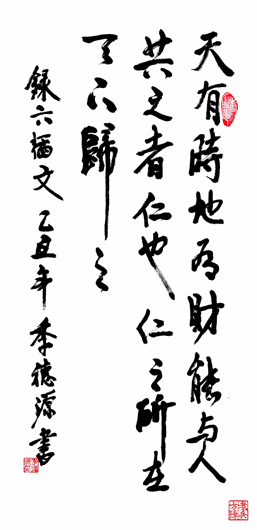 天有時地有財能与人
共之者仁也仁之所在
天下歸之
録六韜文乙丑年李德源書